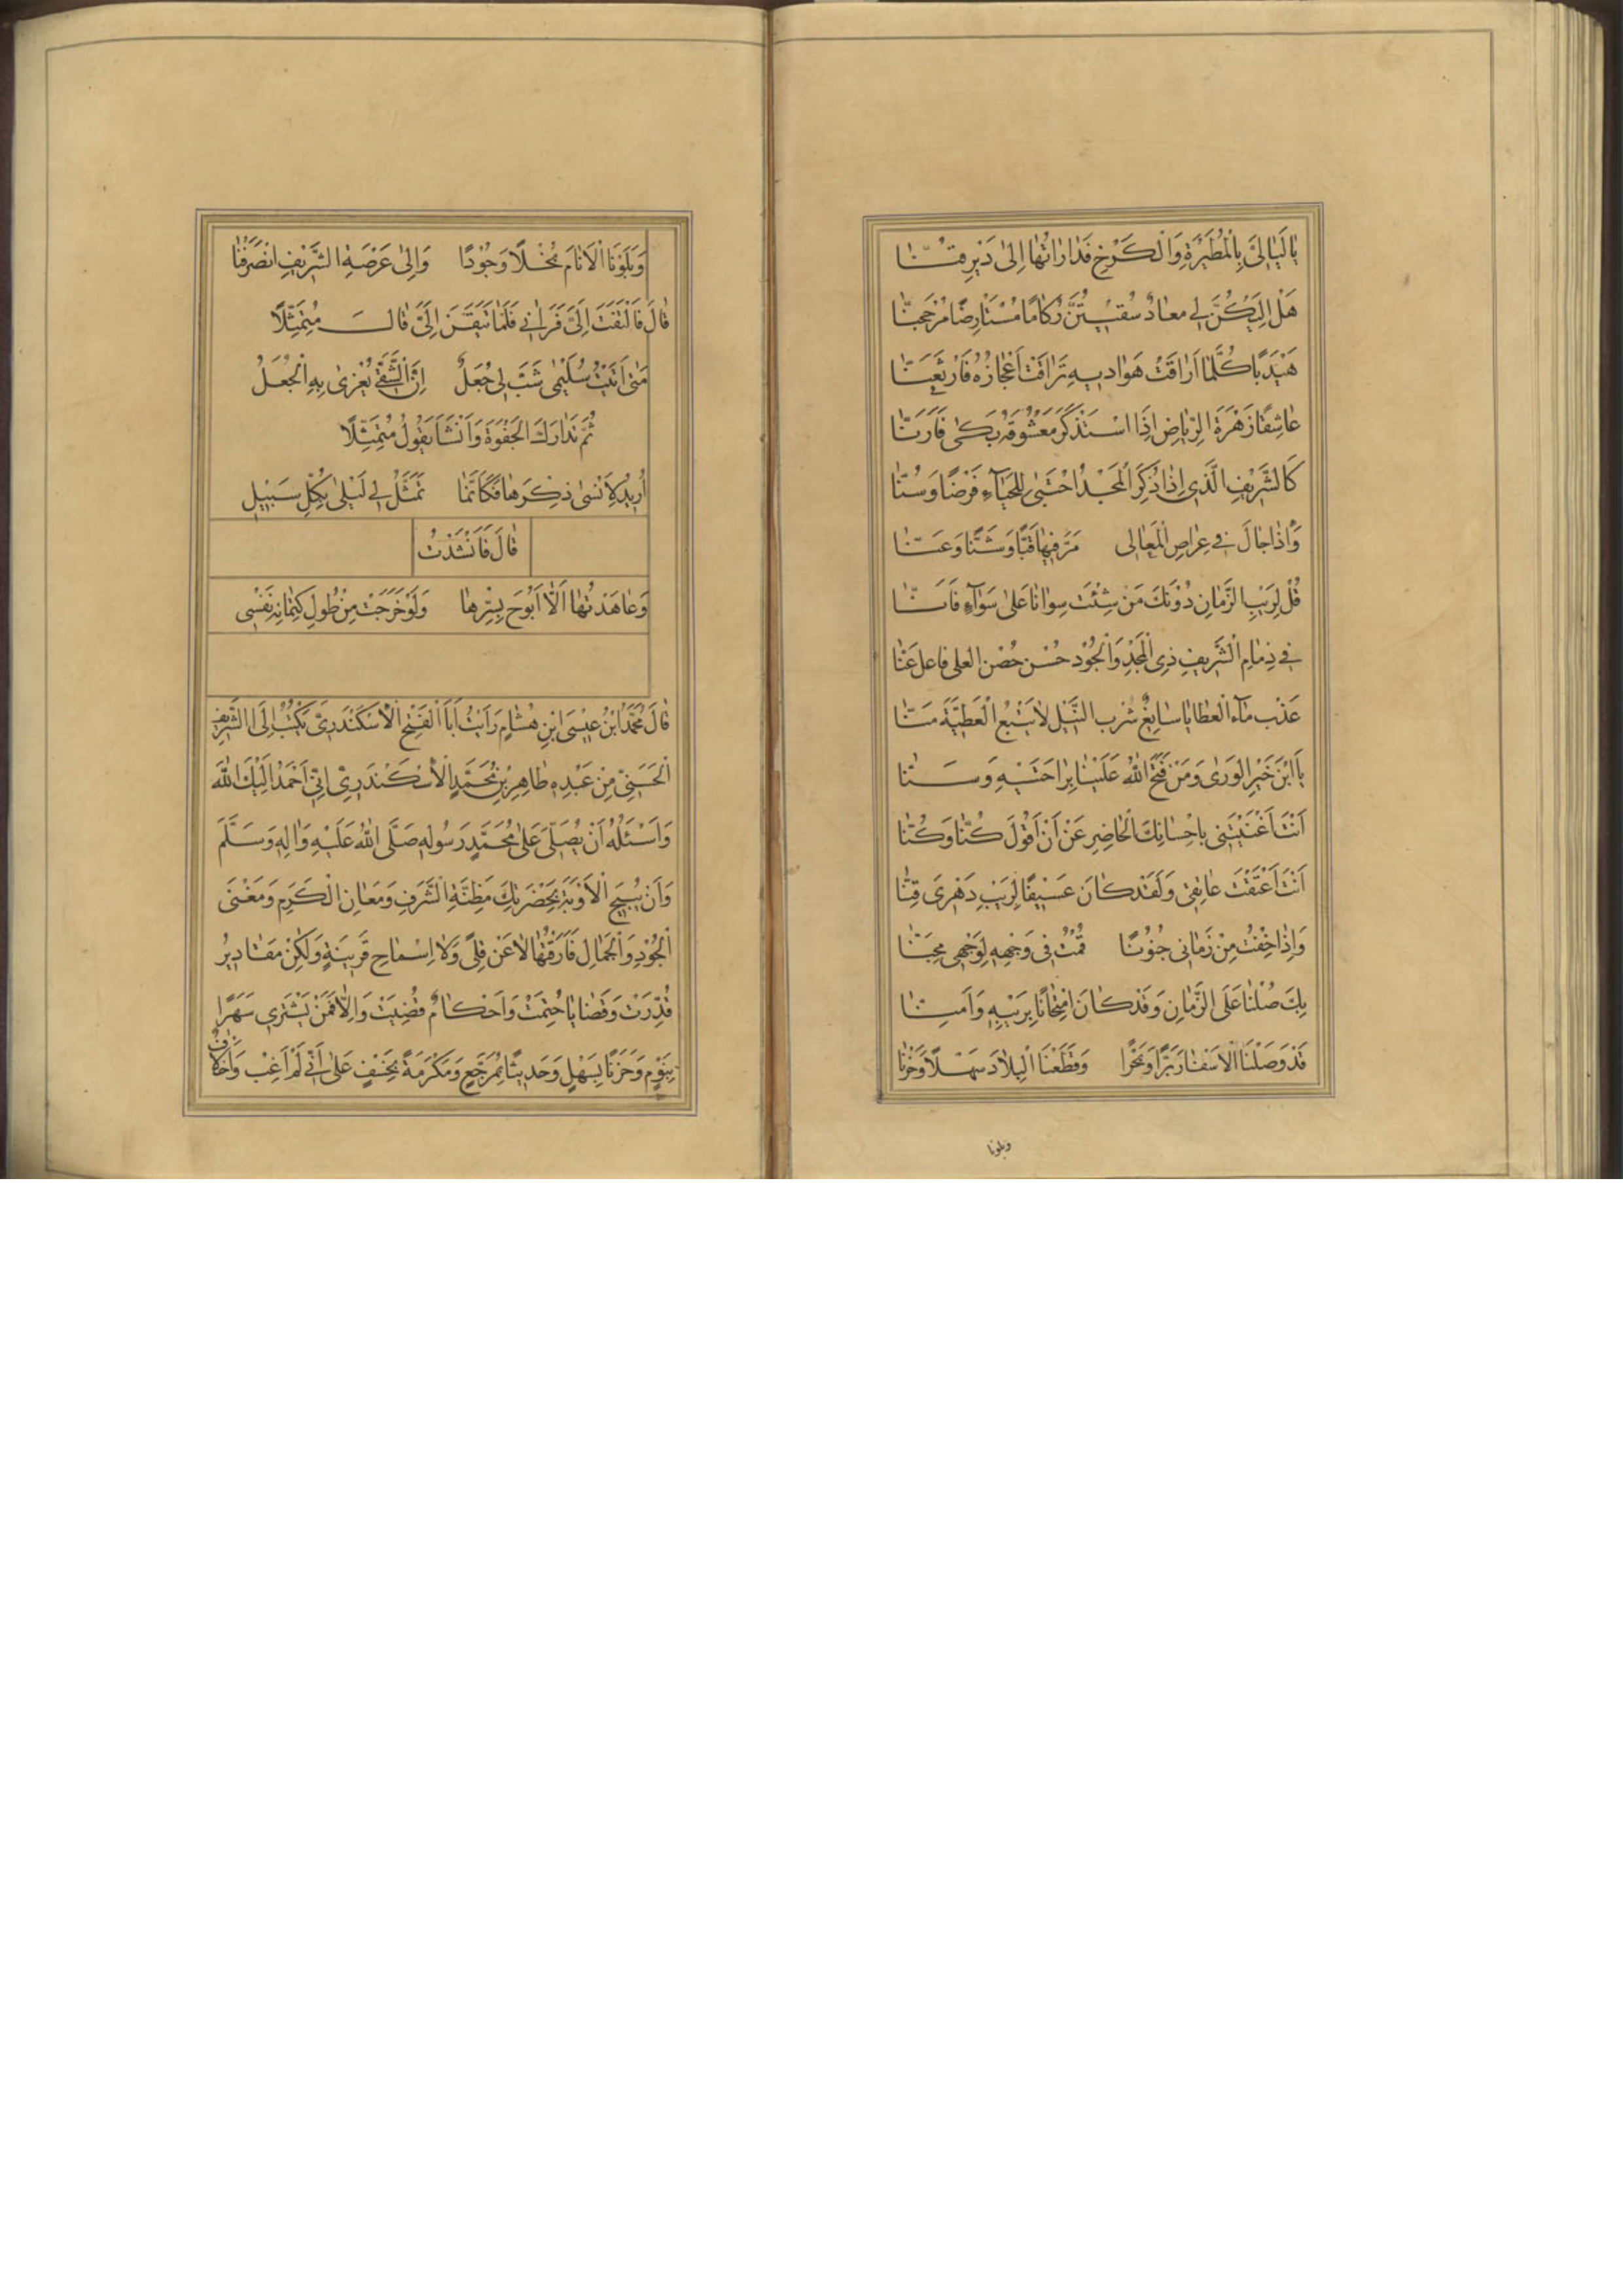 يا لياليَّ بالمطيرة والكرخ فداراتها إلى دير قنّا
هل إليكنّ لي معاد سقيتنّ ركاما مستأرضا مرجحنّا
هيدبا كلما اراقت هواديه تراقت أعجازه فارثعنّا
عاشقا زهرة الرياض إذا استذكر معشوقه بكى فأرنّا
كالشريف الذي إذا ذكر المجد احتبى للحباء فرضا وسنّا
وإذا جال في عراص المعالي مرّ فيها قبّا وشنّا وعنّا
قل لريب الزمان دونك من شئت سوانا على سواء فانّا
في ذمام الشريف ذي المجد والجود حسن حضن العلى فاعل عنّا
عذب ماء العطايا سايغ شرب النيل لا يتبع العطية منّا
يا ابن خير الورى ومن فتح الله علينا براحتيه وسنّا
أنت أغنيتني بإحسانك الحاضر عن أن أقول كنّا وكنّا
أنت أعتقت عاتقي ولقد كان عسيفا لريب دهري قنّا
وإذا خفت من زماني جنونا قمت في وجهه لوجهي مجنّا
بك صلنا على الزمان وقد كان امتحانا بريبه وأمنّا
قد وصلنا الاسفار برّا وبحرا وقطعنا البلاد سهلا وحزنا
وبلونا
وبلونا الأنام بخلا وجودا وإلى عرصة الشريف انصرفنا
قال فالتفت إليّ فراني فلما تيقن إليّ قال متمثلا
متى أتيت سليمى شبّ لي جعل إن الشقي يغرى به الجعل
ثم تدارك الجفوة وأنشأ يقول متمثلا
أريد لأنسى ذكرها فكأنما تمثل لي ليلى بكل سبيل
قال فأنشدت
وعاهدتها ألّا أبوح بسرها ولو خرجت من طول كتمانه نفسي
قال محمد ابن عيسى ابن هشام رأيت أبا الفتح الأسكندري يكتب إلى الشريف
الحسني من عبده طاهر بن محمد الأسكندري إني أحمد إليك الله
وأسئله أن يصلّي على محمد رسوله صلى الله عليه واله وسلم
وأن يبيح الأوبة بحضرتك مظنّة الشرف ومعان الكرم ومغنى
الجود والجمال فارقتها لا عن قلى ولا إسماح قرينة ولكن مقادير
قدّرت وقضايا حتمت وأحكام قضيت وإلّا فمن يشتري سهرا
بنوم وحزنا بسهل وحديثا بمرجّع ومكرمة بخسف على أني لم أغب وأخلاف